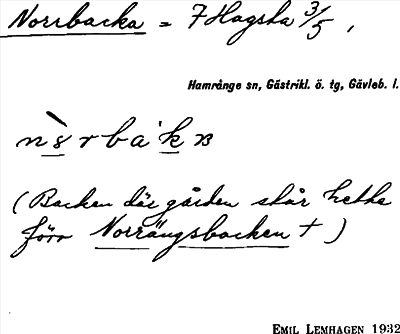 Norrbacka = 7 Hagsta 3/5,
Hamrånge sn, Gästrikl. ö. tg, Gävleb. l.
(Backen där gården står hette
förr Norrängsbacken † )
EMIL LEMHAGEN 1932